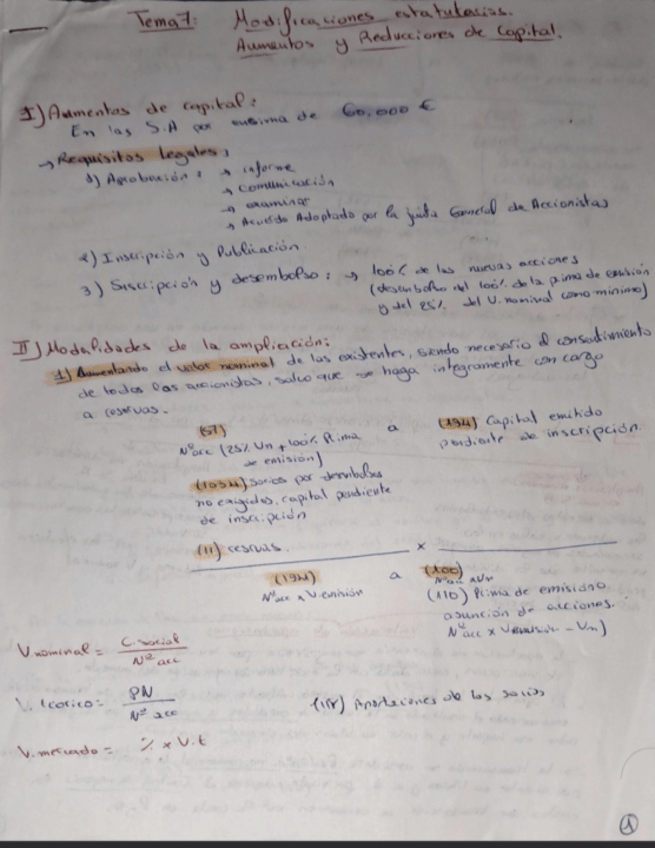 Tema 7: Modificaciones estatutarias.
Aumentos y Reducciones de Capital.
I) Aumentos de capital:
En las S.A por encima de 60.000 €
→ Requisitos legales:
1) Aprobación: → informe
→ comunicación
→ examinar
→ Acuerdo Adoptado por la junta General de Accionistas
2) Inscripción y Publicación.
3) Suscripción y desembolso: → 100% de las nuevas acciones
(desembolso del 100% de la prima de emisión
y del 25% del V. nominal como mínimo)
II) Modalidades de la ampliación:
1) Aumentando el valor nominal de las existentes, siendo necesario el consentimiento
de todos los accionistas, salvo que se haga íntegramente con cargo
a reservas.
(57) a (194) Capital emitido
Nº acc (25% Vn + 100% Prima pendiente de inscripción.
de emisión)
(1034) Socios por desembolsos
no exigidos, capital pendiente
de inscripción
(11) reservas.
x
(194) a (100)
Nº acc x V. emisión Nº acc x Vn
(110) Prima de emisión o
asunción de acciones.
Nº acc x Vemisión - Vn)
V nominal = C. social / Nº acc
V. teorico = PN / Nº acc (118) Aportaciones de los socios
V. mercado = % x V.t
1